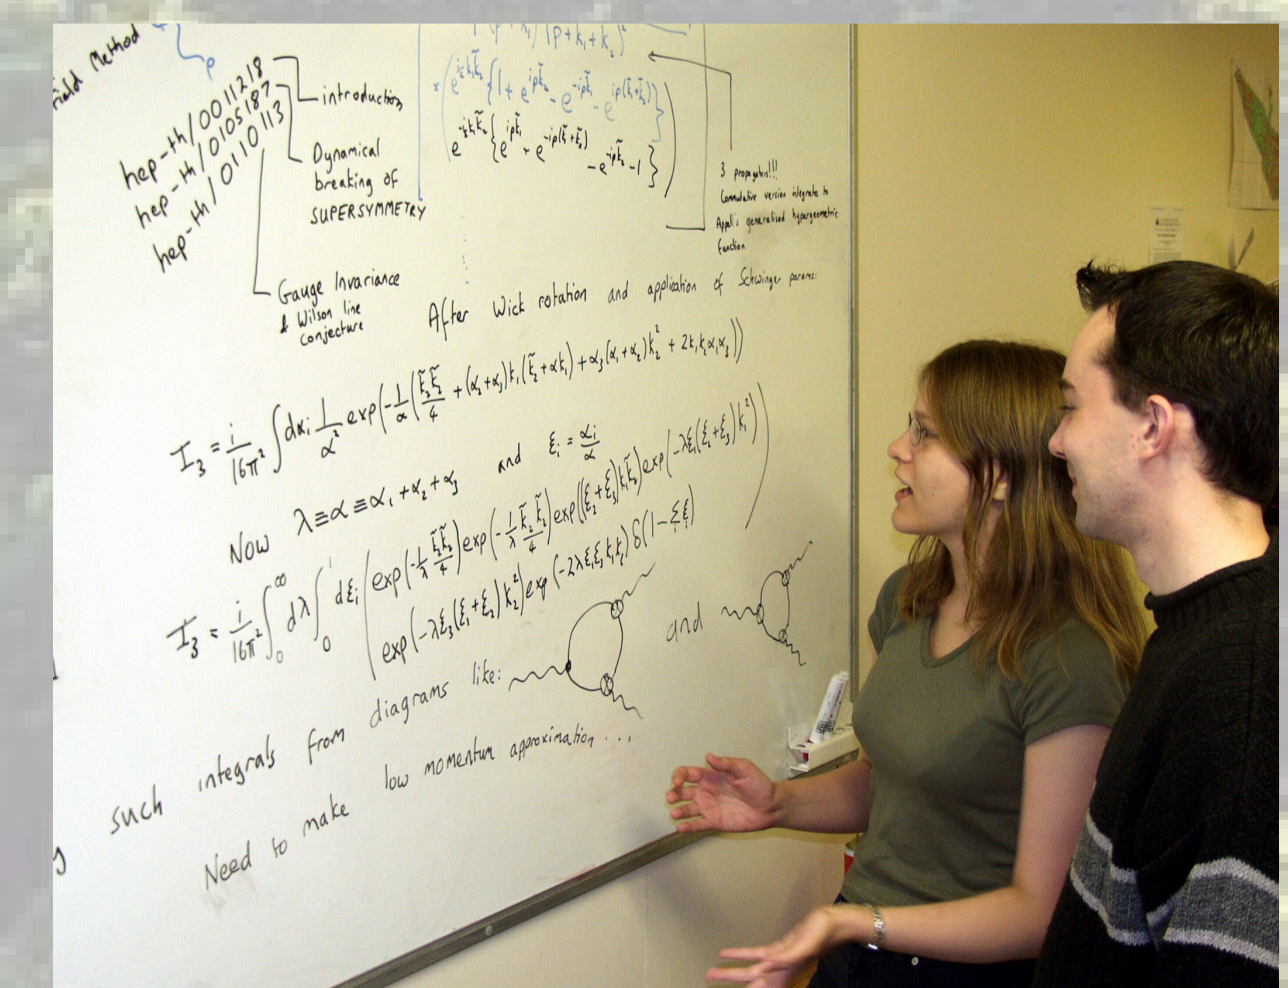 Field Method
p
hep-th/0011218
introduction
hep-th/0105187
Dynamical
breaking of
SUPERSYMMETRY
hep-th/0110113
Gauge Invariance
& Wilson line
conjecture
(p+k₁+k₂)²
3 propagators!!!
Commutative version integrates to
Appell's generalised hypergeometric
function
After Wick rotation and application of Schwinger params:
I₃ = i/16π² ∫dαᵢ 1/α² exp(-1/α(k̃₂k̃₂/4 + (α₂+α₃)k₁(k̃₂+αk₁) + α₃(α₁+α₂)k₂² + 2k₁k₂α₁α₃))
Now λ≡α≡α₁+α₂+α₃ and ξᵢ = αᵢ/α
I₃ = i/16π² ∫₀^∞ dλ ∫₀^1 dξᵢ (exp(-1/λ k̃₂k̃₂/4) exp(-1/λ k̃₂k̃₂/4) exp((ξ₂+ξ₃)k₁k̃₂) exp(-λξ₁(ξ₂+ξ₃)k₁²)
exp(-λξ₃(ξ₁+ξ₂)k₂²) exp(-2λξ₁ξ₃k₁k₂) δ(1-Σξᵢ)
such integrals from diagrams like: and
Need to make low momentum approximation ....